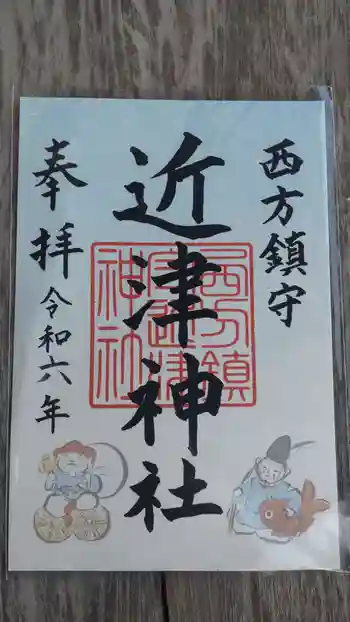 西方鎮守
近津神社
奉拝
令和六年
西方鎮
守近津
神社